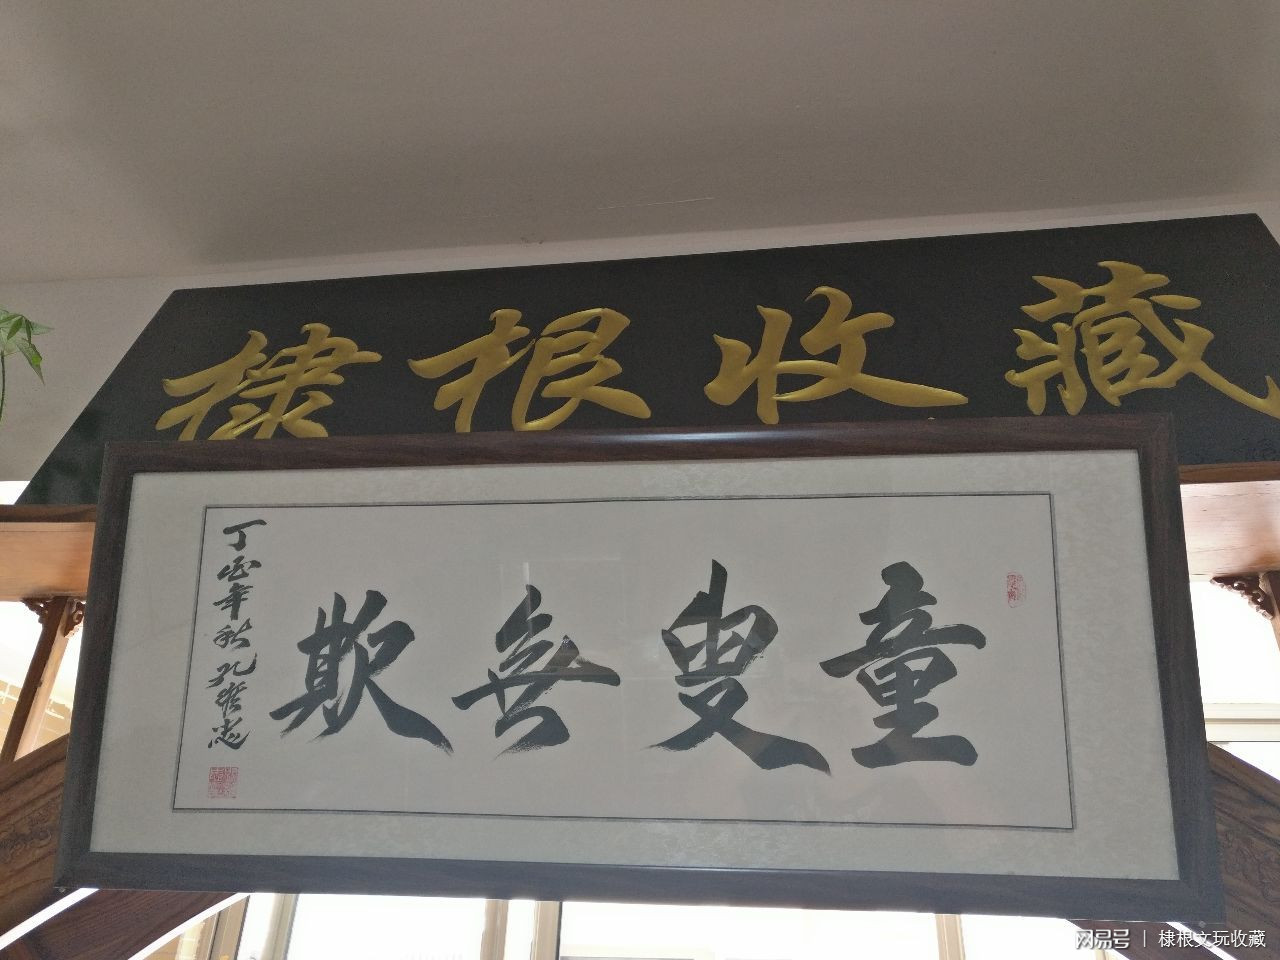 棣根收藏
童叟無欺
丁酉年秋孔维忠
网易号 | 棣根文玩收藏